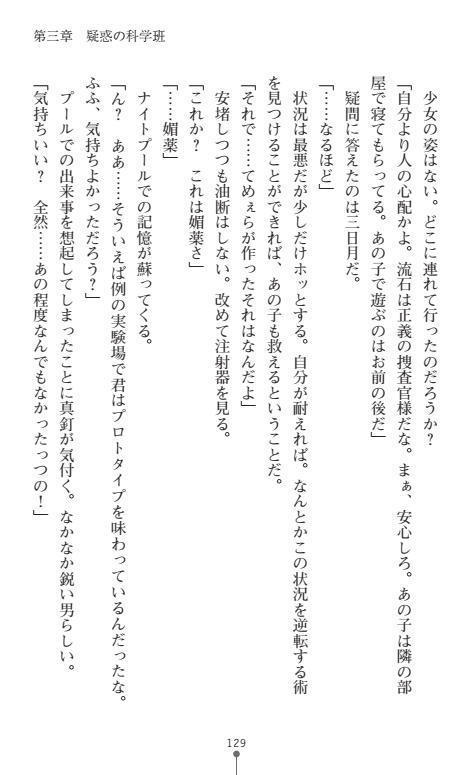 第三章　疑惑の科学班
　少女の姿はない。どこに連れて行ったのだろうか？
「自分より人の心配かよ。流石は正義の捜査官様だな。まぁ、安心しろ。あの子は隣の部
屋で寝てもらってる。あの子で遊ぶのはお前の後だ」
　疑問に答えたのは三日月だ。
「……なるほど」
　状況は最悪だが少しだけホッとする。自分が耐えれば。なんとかこの状況を逆転する術
を見つけることができれば、あの子も救えるということだ。
「それで……てめぇらが作ったそれはなんだよ」
　安堵しつつも油断はしない。改めて注射器を見る。
「これか？　これは媚薬さ」
「……媚薬」
　ナイトプールでの記憶が蘇ってくる。
「ん？　ああ……そういえば例の実験場で君はプロトタイプを味わっているんだったな。
ふふ、気持ちよかっただろう？」
　プールでの出来事を想起してしまったことに真釘が気付く。なかなか鋭い男らしい。
「気持ちいい？　全然……あの程度なんでもなかったっつの！」
129